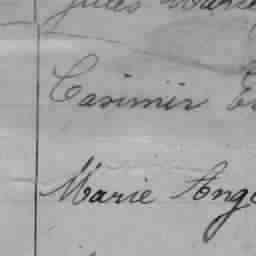 Jules
Casimir
Marie Ange